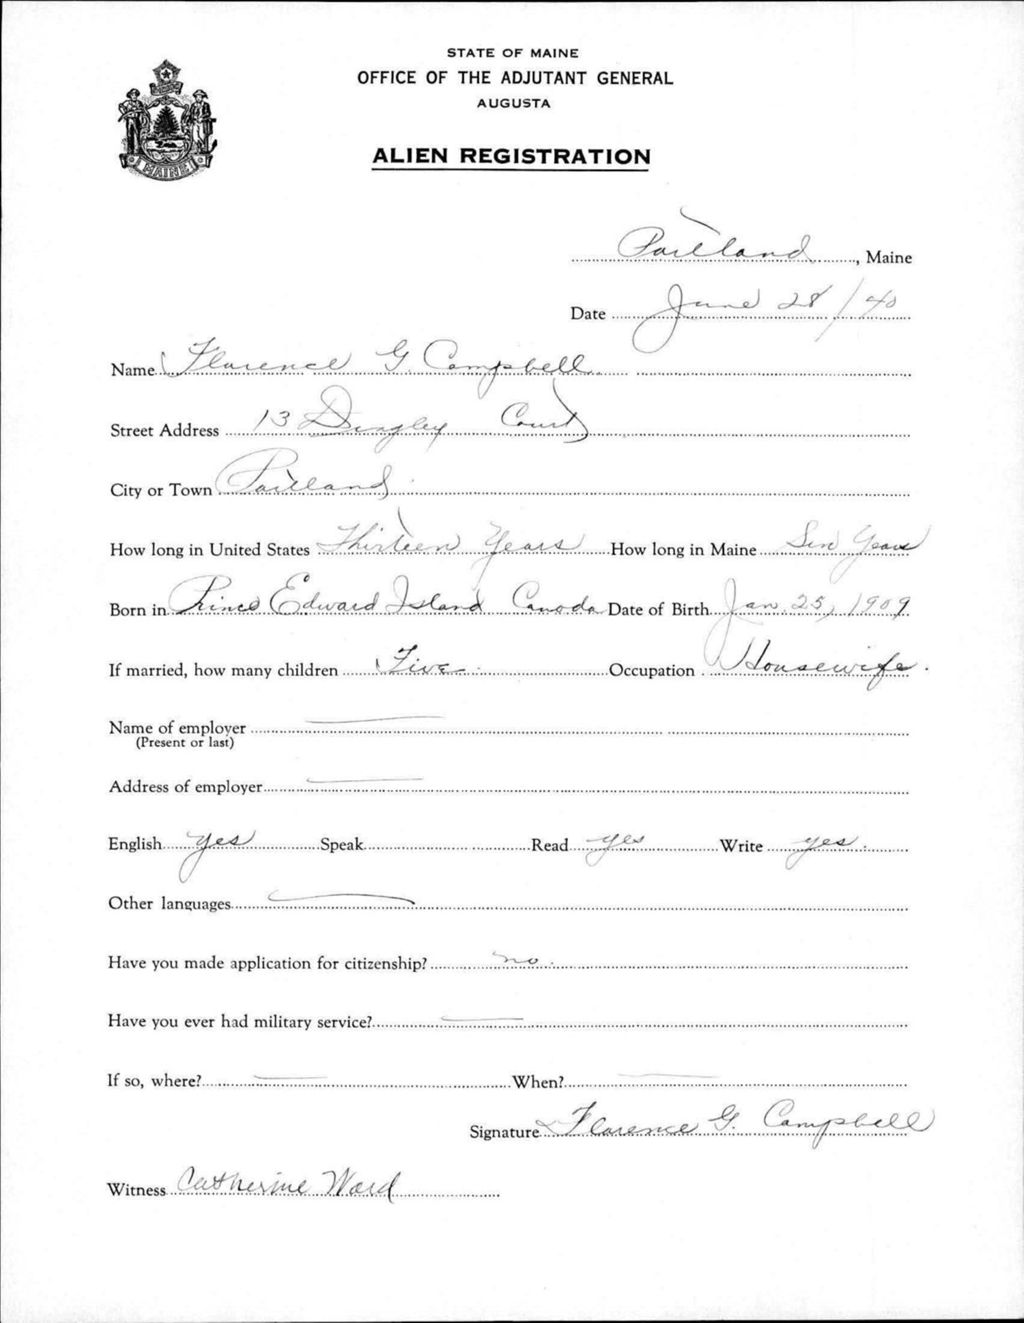 STATE OF MAINE
OFFICE OF THE ADJUTANT GENERAL
AUGUSTA
ALIEN REGISTRATION
MAINE
Portland, Maine
Date June 28/40
Name Florence G. Campbell
Street Address 13 Dingley Court
City or Town Portland
How long in United States Thirteen Years How long in Maine Years
Born in Prince Edward Island Canada Date of Birth Jan. 25, 1909
If married, how many children Five Occupation Housewife.
Name of employer
(Present or last)
Address of employer
English yes Speak Read yes Write yes.
Other languages
Have you made application for citizenship? no.
Have you ever had military service?
If so, where? When?
Signature Florence G. Campbell
Witness Catherine Ward